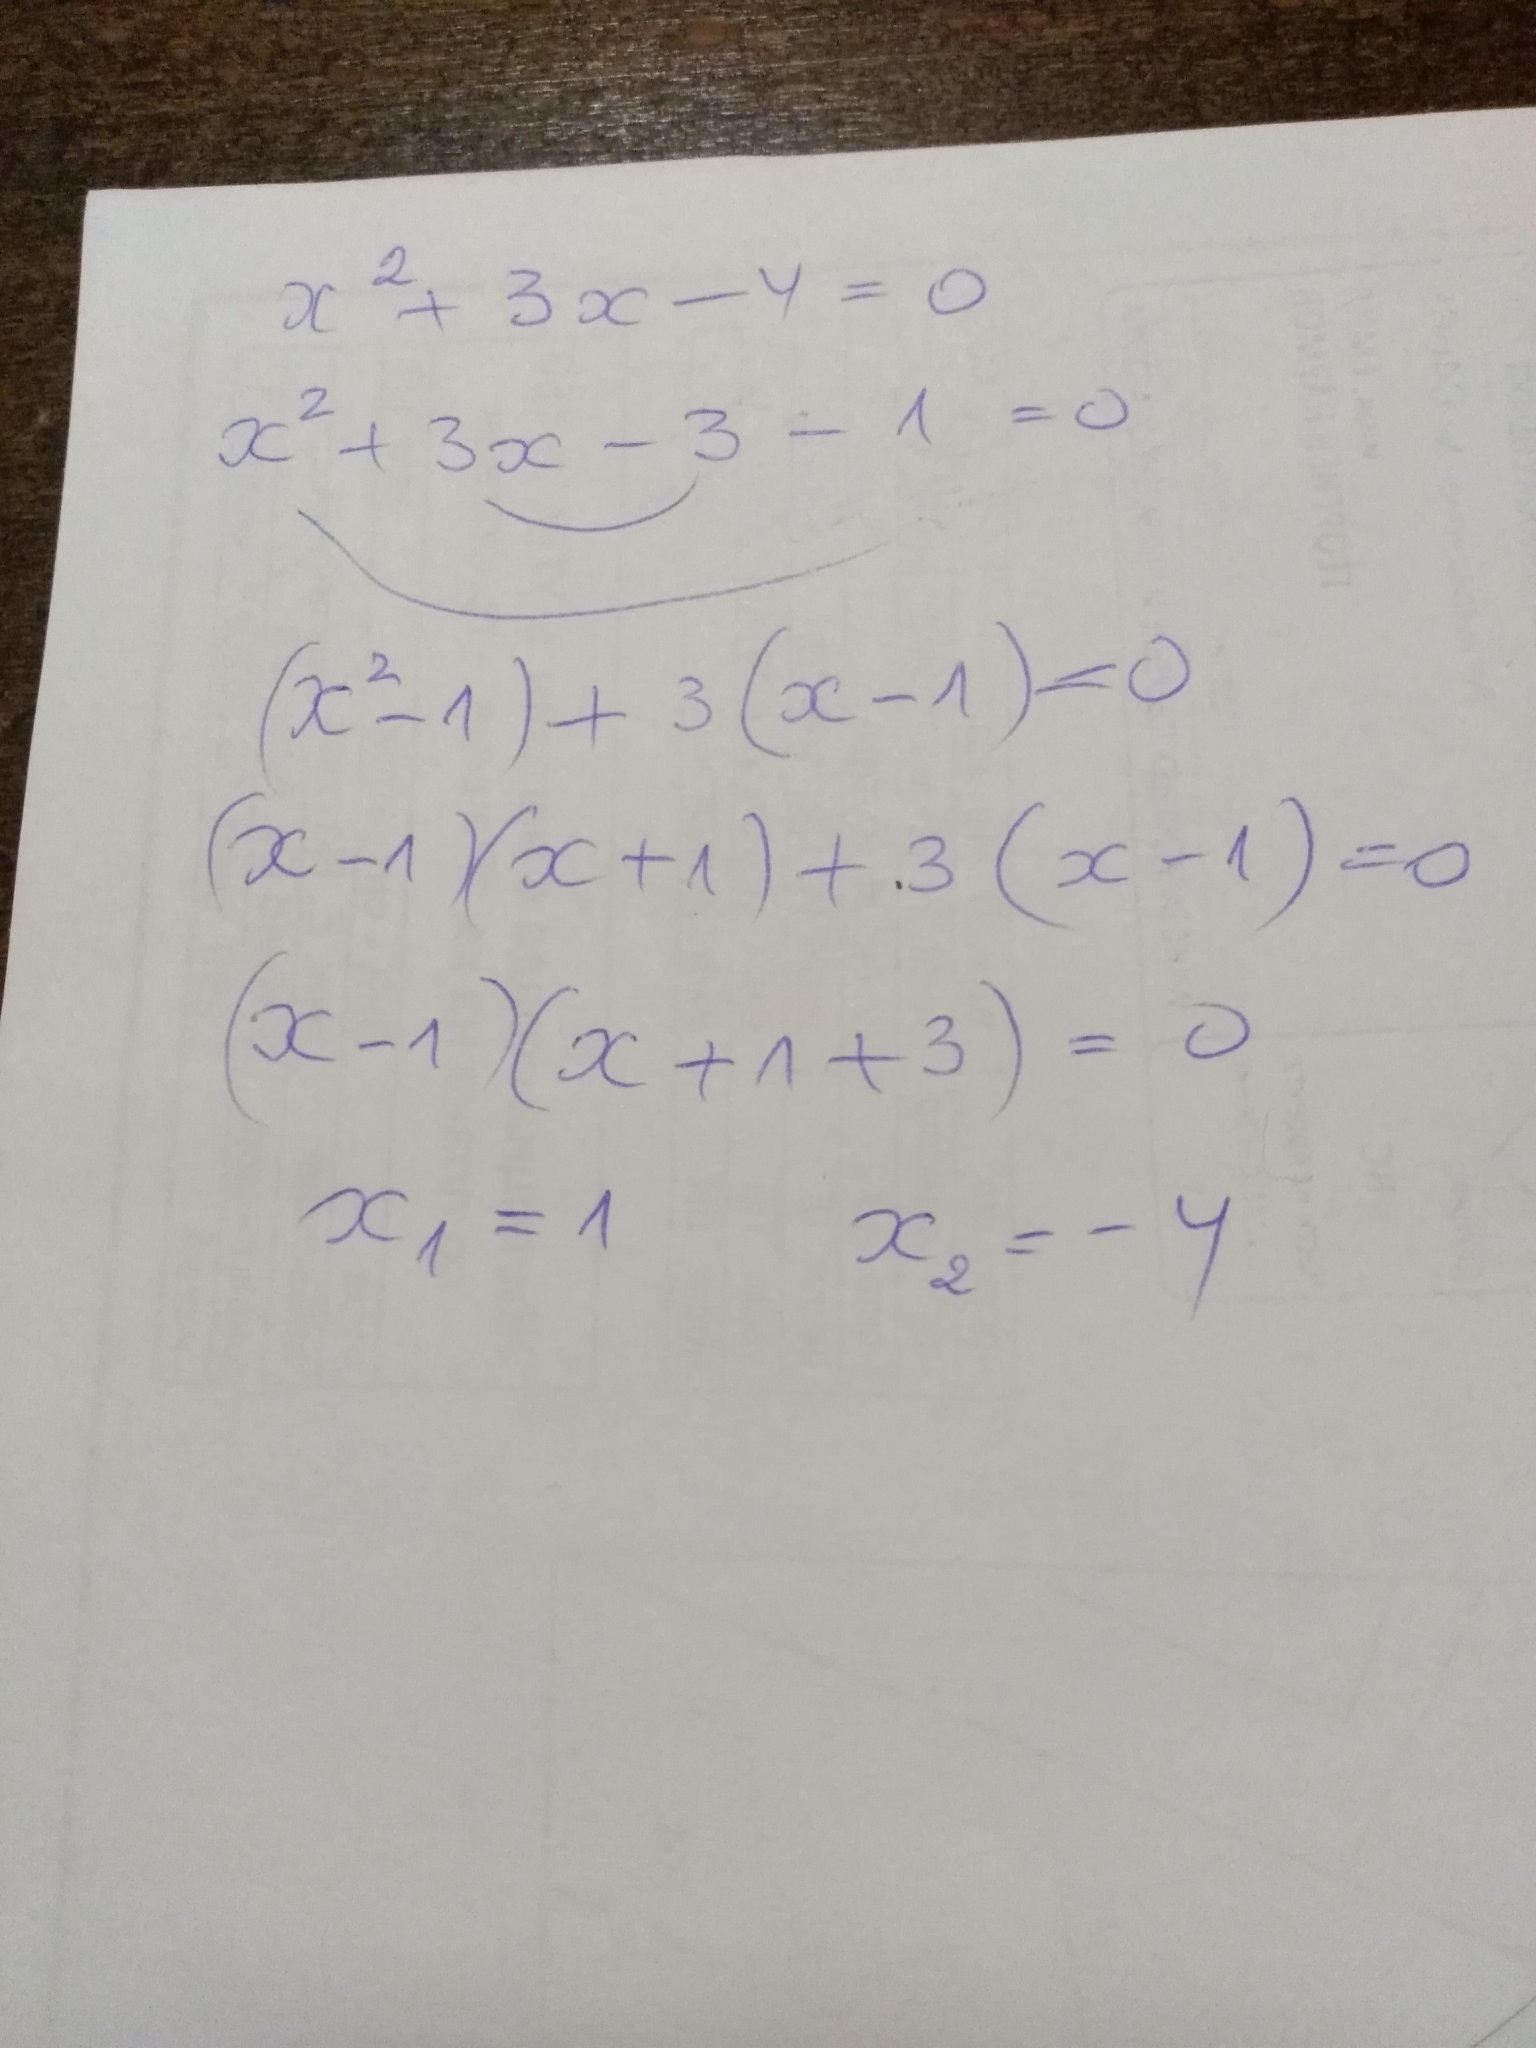 x² + 3x - 4 = 0
x² + 3x - 3 - 1 = 0
(x² - 1) + 3(x - 1) = 0
(x - 1)(x + 1) + 3(x - 1) = 0
(x - 1)(x + 1 + 3) = 0
x₁ = 1 x₂ = -4